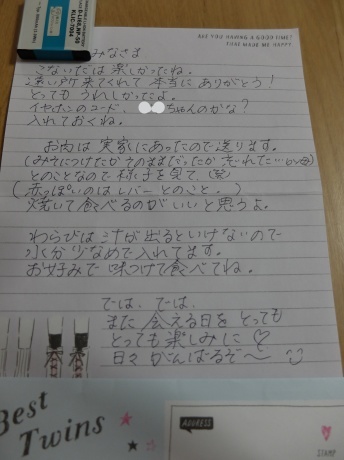 ARE YOU HAVING A GOOD TIME?
THAT MADE ME HAPPY
みなさま
こないだは楽しかったね。
遠い所来てくれて本当にありがとう!
とってもうれしかったよ。
イヤホンのコード、ちゃんのかな?
入れておくね。
お肉は実家にあったので送ります。
(みそにつけたかそのままだったか忘れた…
とのことなので様子を見て、(笑)
(赤っぽいのはレバーとのこと。)
焼いて食べるのがいいと思うよ。
わらびは汁が出るといけないので
水分少なめで入れてます。
お好みで味つけて食べてね。
では、では、
また会える日をとっても
とっても楽しみに♡
日々がんばるぞ〜
Best
Twins
ADDRESS
STAMP